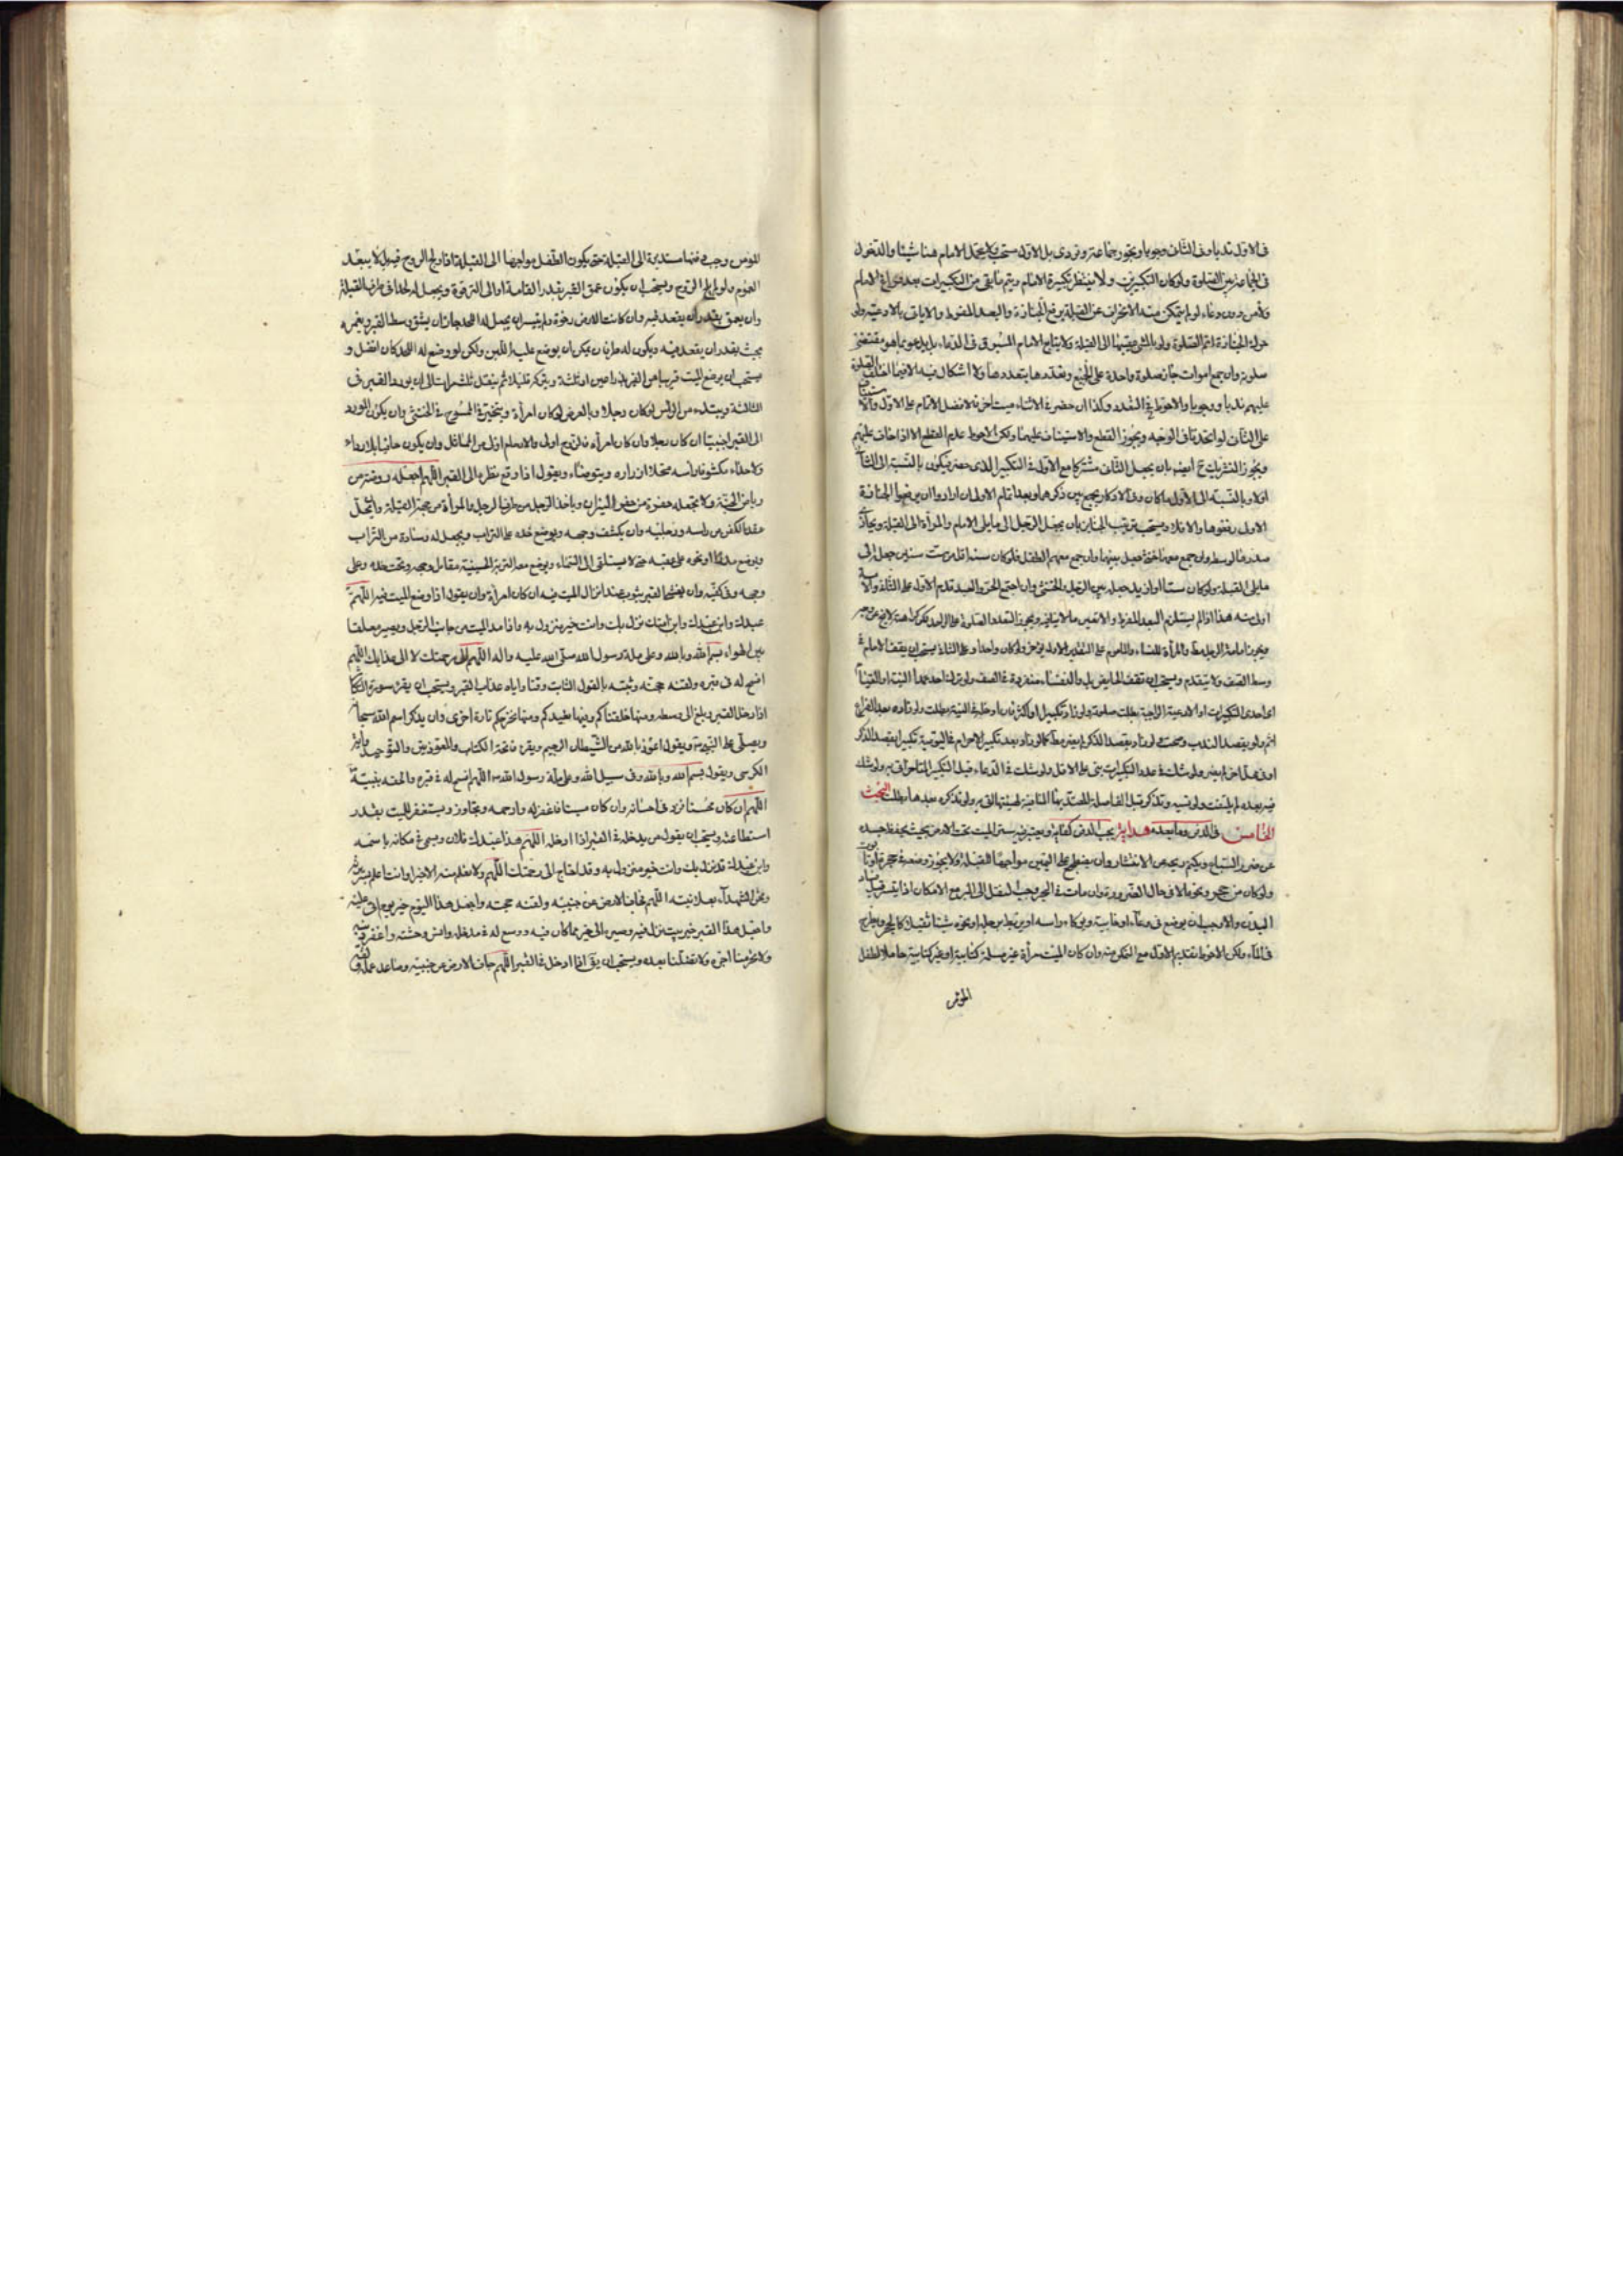 فى الاول ندبا وفى الثانى وجوبا ويجوز جماعة وفرادى بل الاول مستحب ولا يتحمل الامام هنا شيئا والدخول
فى الجماعة بين الصلوة ولو كان التكبيرتين ولا ينتظر تكبيرة الامام ويتم ما بقى من التكبيرات بعد فراغ الامام
ولاء من دون دعاء لو لم يتمكن منه الانحراف عن القبلة برفع الجنازة والبعد المفرط والا ياتى بالادعية ولو
حول الجنازة اتم الصلوة ولو بالمشى عقيبها الى القبلة ولا يتابع الامام المسبوق فى الدعاء بل يدعو بما هو مقتضى
صلوته وان جمع اموات جاز صلوة واحدة على الجميع وتعددها بتعددها ولا اشكال فيه الا فيما اختلف الصلوة
عليهم ندبا ووجوبا والاحوط فى التعدد وكذا ان حضر فى الاثناء ميت اخر فالافضل الاتمام على الاول والاستيناف
على الثانى لو اتحدتا فى الوجه ويجوز القطع والاستيناف عليهما ولكن الاحوط عدم القطع الا اذا خاف عليهم
ويجوز التشريك ح ايضا بان يجعل الثانى مشتركا مع الاول فى التكبير الذى حضر فيكون بالنسبة الى الثانى
اولا وبالنسبة الى الاول ما كان وفى الاذكار يجمع بين ذكرهما وبعد تمام الاول ان ارادوا ان يرفعوا الجنازة
الاولى رفعوها والا فلا ويستحب ترتيب الجنايز بان يجعل الرجل الى ما يلى الامام والمرأة الى القبلة ويحاذى
صدرها لوسطه ولو جمع معهما خنثى فصل بينهما وان جمع معهم الطفل فلو كان سنه اقل من ست سنين جعل الى
ما يلى القبلة ولو كان ستا او ازيد جعل بين الرجل والخنثى وان اجتمع الحر والعبد قدم الاول على الثانى والا
وسط الصف ولا يتقدم ويستحب ان تقف الحايض بل والنفساء منفردة فى الصف ولو ترك احد عمدا النية او القيام
او احدى التكبيرات او الادعية الواجبة بطلت صلوته ولو زاد تكبيرا او اكثر فان ادخله فى النية بطلت ولو زاده بعد الفراغ
اثم ولو بقصد الندب وصحت
فيه بعده لم يلتفت ولو نسيه وتذكر قبل الفاصلة المعتد بها المنافية لهيئتها اتى به ولو تذكره بعدها بطلت المبحث
الخامس فى الدفن وما بعده هداية يجب الدفن كفاية ويعتبر فيه ستر الميت تحت الارض بحيث يحفظ جسده
عن ضرر السباع ويكتم ريحه من الانتشار وان يضطجع على اليمين مواجها للقبلة ولا يجوز وضعه فى حجر تابوت
ولو كان من حجر ونحوه الا فى حال الضرورة وان مات فى البحر وجب النقل الى البر مع الامكان اذا تيسر قبل فساد
البدن والا وجب ان يوضع فى وعاء او خابية ويوكاء راسه او يربط برجله او نحوه شيئا ثقيلا كالحجر ويطرح
فى الماء ولكن الاحوط تقديم الاول مع التمكن منه وان كان الميت مرأة غير مسلمة كتابية او غير كتابية حاملا لطفل
المؤمن
المؤمن وجب دفنها مستدبرة الى القبلة حتى يكون الطفل مواجها الى القبلة اذا ولج الروح فيه بل لا يبعد
العموم ولو لم يلج الروح ويستحب ان يكون عمق القبر بقدر القامة او الى الترقوة ويجعل له لحدا فى طرف القبلة
وان يعمق بقدر ان يقعد فيه وان كانت الارض رخوة ولم يتيسر ان يجعل له اللحد جاز ان يشق وسط القبر
بحيث بقدر ان يقعد فيه ويكون له طرفان يمكن ان يوضع عليه اللبن ولكن لو وضع له اللحد كان افضل و
يستحب ان يوضع الميت قريبا من القبر بذراعين او ثلثة ويترك قليلا ثم ينقل ثلث مرات الى ان يورد القبر فى
الثالثة ويبتدء من الراس لو كان رجلا وبالعرض لو كان امرأة ويتخير فى الممسوح فى الخنثى وان يكون المورد
الى القبر اجنبيا ان كان رجلا وان كان امرأة فالزوج اولى والارحام اولى من المماثل وان يكون حافيا بلا رداء
ولا حذاء مكشوفا راسه محللا ازراره ويتوضاء ويقول اذا وقع نظره الى القبر اللهم اجعله روضة من
رياض الجنة ولا تجعله حفرة من حفر النيران وياخذ الرجل من طرف الرجل والمرأة من جهة القبلة وان يحل
عقد الكفن من راسه ورجليه وان يكشف وجهه ويوضع خده على التراب ويجعل له وسادة من التراب
ويوضع مدرا او نحوه على عقبه حتى لا يستلقى الى السماء ويوضع معه التربة الحسينية مقابل وجهه وتحت خده وعلى
وجهه وفى كفنه وان يغطى القبر بثوب عند انزال الميت فيه ان كان امرأة وان يقول اذا وضع الميت فيه اللهم
عبدك وابن عبدك وابن امتك نزل بك وانت خير منزول به واذا مد الميت من جانب الرجل ويصير معلقا
بين الهواء بسم الله وبالله وعلى ملة رسول الله صلى الله عليه واله اللهم الى رحمتك لا الى عذابك اللهم
افسح له فى قبره ولقنه حجته وثبته بالقول الثابت وقنا واياه عذاب القبر ويستحب ان
اذا دخل القبر وبلغ الى وسطه ومنها خلقناكم وفيها نعيدكم ومنها نخرجكم تارة اخرى وان يذكر اسم الله سبحانه
ويصلى على النبى ويقول اعوذ بالله من الشيطان الرجيم ويقرء فاتحة الكتاب والمعوذتين والتوحيد واية
الكرسى ويقول بسم الله وبالله وفى سبيل الله وعلى ملة رسول الله اللهم افسح له فى قبره والحقه بنبيه
اللهم ان كان محسنا فزد فى احسانه وان كان مسيئا فاغفر له وارحمه وتجاوز ويستغفر للميت بقدر
استطاعته ويستحب ان يقول من يدخله فى القبر اذا ادخله اللهم هذا عبدك فلان ويسمى فى مكانه باسمه
وابن عبدك قد نزل بك وانت خير منزول به وقد احتاج الى رحمتك اللهم ولا نعلم منه الا خيرا وانت اعلم بسريرته
ونحن الشهداء بعلانيته اللهم فجاف الارض عن جنبيه ولقنه حجته واجعل هذا اليوم خير يوم اتى عليه
واجعل هذا القبر خير بيت نزل فيه وصيره الى خير مما كان فيه ووسع له فى مدخله وانس وحشته واغفر ذنبه
ولا تحرمنا اجره ولا تضلنا بعده ويستحب ان يقول اذا ادخل فى القبر اللهم جاف الارض عن جنبيه وصاعد عمله